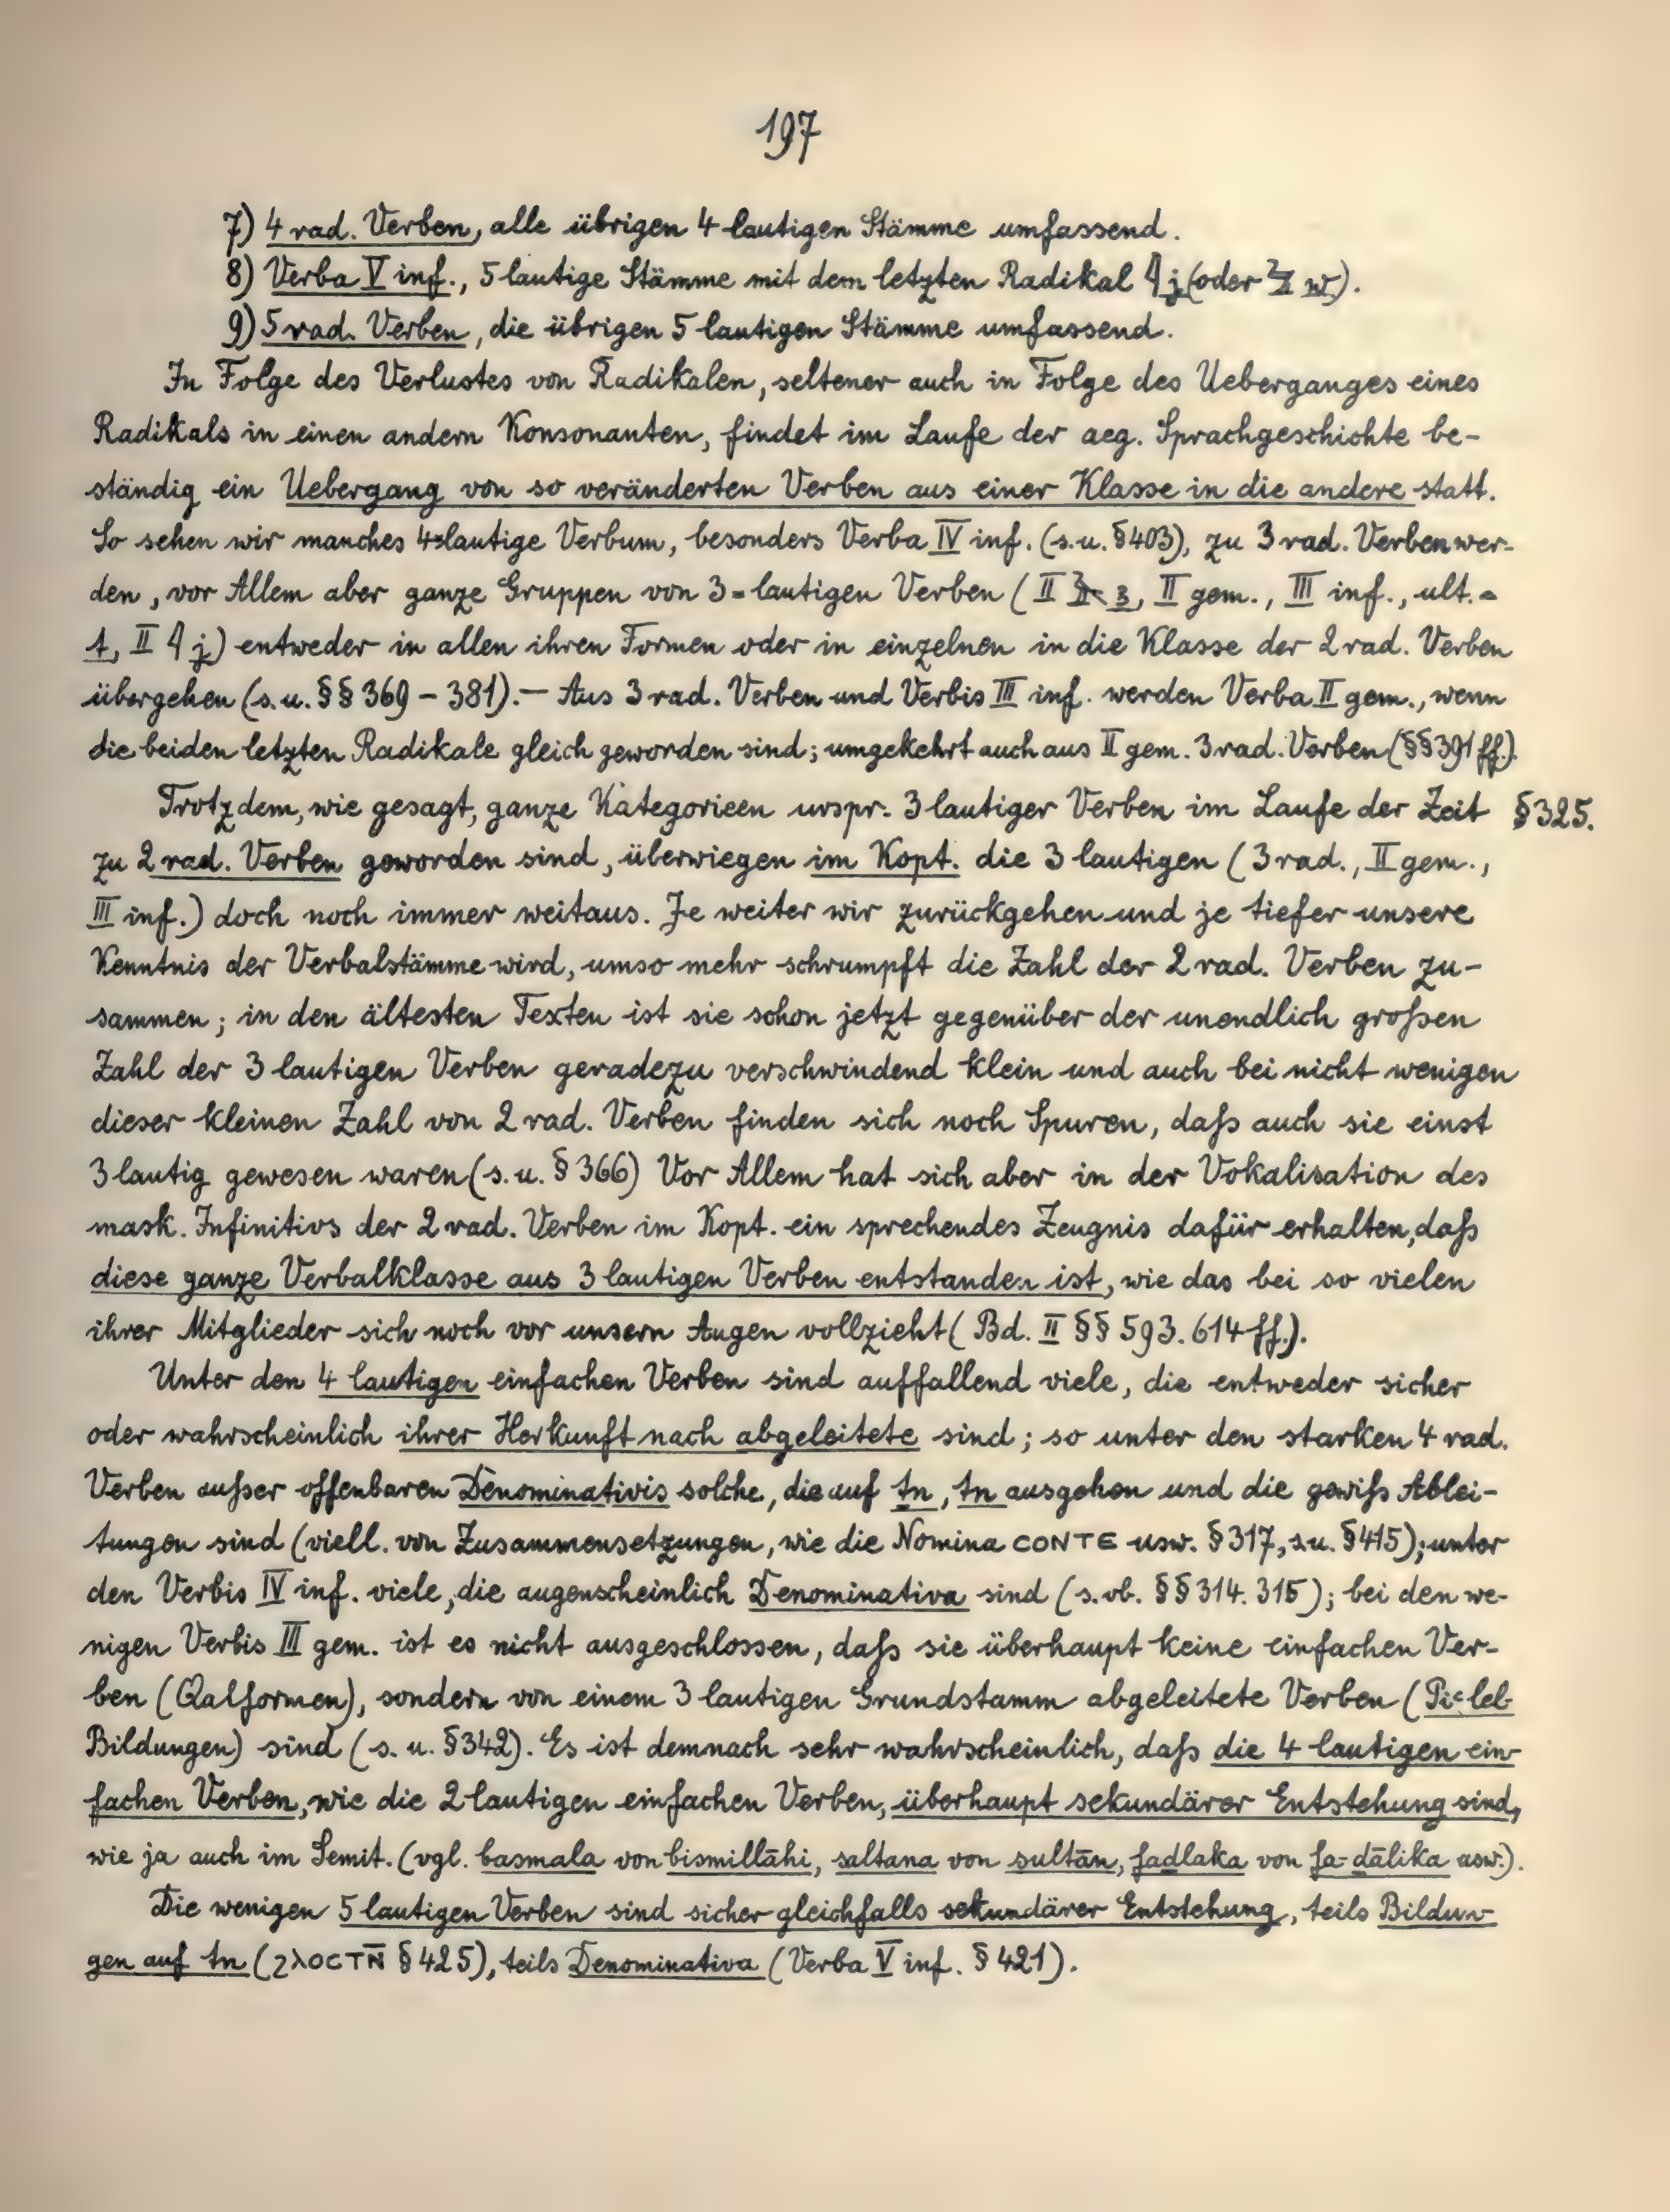 197
7) 4 rad. Verben, alle übrigen 4 lautigen Stämme umfassend.
8) Verba V inf., 5 lautige Stämme mit dem letzten Radikal 𓇋 j (oder 𓅱 w).
9) 5 rad. Verben, die übrigen 5 lautigen Stämme umfassend.
In Folge des Verlustes von Radikalen, seltener auch in Folge des Ueberganges eines
Radikals in einen andern Konsonanten, findet im Laufe der aeg. Sprachgeschichte be-
ständig ein Uebergang von so veränderten Verben aus einer Klasse in die andere statt.
So sehen wir manches 4-lautige Verbum, besonders Verba IV inf. (s.u. §403), zu 3 rad. Verben wer-
den, vor Allem aber ganze Gruppen von 3-lautigen Verben (II 𓄿 3, II gem., III inf., ult.
t, II 𓇋 j) entweder in allen ihren Formen oder in einzelnen in die Klasse der 2 rad. Verben
übergehen (s. u. §§ 369 – 381). — Aus 3 rad. Verben und Verbis III inf. werden Verba II gem., wenn
die beiden letzten Radikale gleich geworden sind; umgekehrt auch aus II gem. 3 rad. Verben (§§ 391 ff.).
Trotzdem, wie gesagt, ganze Kategorieen urspr. 3 lautiger Verben im Laufe der Zeit §325.
zu 2 rad. Verben geworden sind, überwiegen im Kopt. die 3 lautigen (3 rad., II gem.,
III inf.) doch noch immer weitaus. Je weiter wir zurückgehen und je tiefer unsere
Kenntnis der Verbalstämme wird, umso mehr schrumpft die Zahl der 2 rad. Verben zu-
sammen; in den ältesten Texten ist sie schon jetzt gegenüber der unendlich großen
Zahl der 3 lautigen Verben geradezu verschwindend klein und auch bei nicht wenigen
dieser kleinen Zahl von 2 rad. Verben finden sich noch Spuren, daß auch sie einst
3 lautig gewesen waren (s. u. § 366) Vor Allem hat sich aber in der Vokalisation des
mask. Infinitivs der 2 rad. Verben im Kopt. ein sprechendes Zeugnis dafür erhalten, daß
diese ganze Verbalklasse aus 3 lautigen Verben entstanden ist, wie das bei so vielen
ihrer Mitglieder sich noch vor unsern Augen vollzieht (Bd. II §§ 593. 614 ff.).
Unter den 4 lautigen einfachen Verben sind auffallend viele, die entweder sicher
oder wahrscheinlich ihrer Herkunft nach abgeleitete sind; so unter den starken 4 rad.
Verben außer offenbaren Denominativis solche, die auf ṯn, tn ausgehen und die gewiß Ablei-
tungen sind (viell. von Zusammensetzungen, wie die Nomina ⲤⲞⲚⲦⲈ usw. § 317, s.u. § 415); unter
den Verbis IV inf. viele, die augenscheinlich Denominativa sind (s. ob. §§ 314. 315); bei den we-
nigen Verbis III gem. ist es nicht ausgeschlossen, daß sie überhaupt keine einfachen Ver-
ben (Qalformen), sondern von einem 3 lautigen Grundstamm abgeleitete Verben (Piʿlel-
Bildungen) sind (s. u. § 342). Es ist demnach sehr wahrscheinlich, daß die 4 lautigen ein-
fachen Verben, wie die 2 lautigen einfachen Verben, überhaupt sekundärer Entstehung sind,
wie ja auch im Semit. (vgl. basmala von bismillāhi, saltana von sultān, faḏlaka von fa-ḏālika usw.).
Die wenigen 5 lautigen Verben sind sicher gleichfalls sekundärer Entstehung, teils Bildun-
gen auf tn (ϨⲖⲞⲤⲦⲚ̄ § 425), teils Denominativa (Verba V inf. § 421).